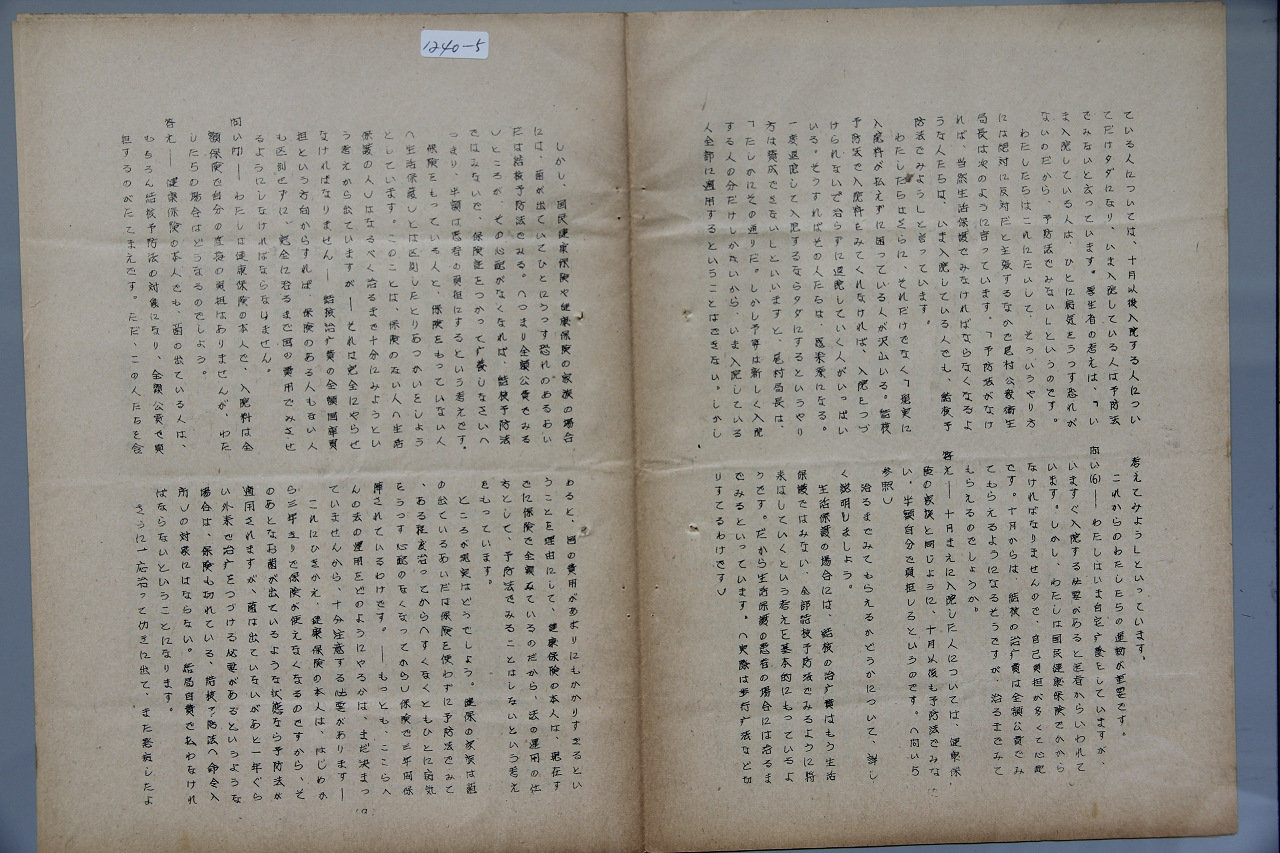 1240-5
ている人については、十月以後入院する人につい
てだけタダになり、いま入院している人は予防法
でみないと云っています。厚生省の考えは、「い
ま入院している人は、ひとに病気をうつす恐れが
ないのだから、予防法でみない」というのです。
わたしたちはこれにたいして、そういうやり方
には絶対に反対だと主張するなかで尾村公衆衛生
局長は次のように言っています。「予防法がなけ
れば、当然生活保護でみなければならなくなるよ
うな人たちは、いま入院している人でも、結核予
防法でみようしと言っています。
わたしたちはさらに、それだけでなく「現実に
入院料が払えずに困っている人が沢山いる。結核
予防法で入院料をみてくれなければ、入院をつづ
けられないで治らずに退院していく人がいっぱい
いる。そうすればその人たちは、医療券になる。
一度退院して入院するならタダにするというやり
方は賛成できない」といいますと、尾村局長は、
「たしかにその通りだ。しかし予算は新しく入院
する人の分だけしかないから、いま入院している
人全部に適用するということはできない。しかし
考えてみよう」といっています。
これからのわたしたちの運動が重要です。
問い(6)――わたしはいま自宅療養をしていますが、
いますぐ入院する必要があると医者からいわれて
います。しかし、わたしは国民健康保険でかから
なければなりませんので、自己負担が多くて心配
です。十月からは、結核の治療費は全額公費でみ
てもらえるようになるそうですが、治るまでみて
もらえるのでしょうか。
答え――十月まえに入院した人については、健康保
険の家族と同じように、十月以後も予防法でみな
い、半額自分で負担しろというのです。（問い5
参照）
治るまでみてもらえるかどうかについて、詳し
く説明しましょう。
生活保護の場合には、結核の治療費はもう生活
保護ではみない、全部結核予防法でみるように将
来はしていくという考えを基本的にもっているよ
うです。だから生活保護の患者の場合には治るま
でみるといっています。（実際は歩行療法などな
りすてるわけです）
しかし、国民健康保険や健康保険の家族の場合
には、菌が出ていてひとにうつす恐れのあるあい
だは結核予防法でみる。（つまり全額公費でみる
）ところが、その心配がなくなれば、結核予防法
ではみないで、保険証をつかって療養しなさい（
つまり、半額は患者の負担にするという考えです。
保険をもっている人と、保険をもっていない人
（生活保護）とは区別したとりあつかいをしよう
としています。このことは、保険のない人（生活
保護の人）はなるべく治るまで十分にみようとい
う考えから出ていますが――それは完全にやらせ
なければなりません――結核治療費の全額国庫負
担という方向からすれば、保険のある人もない人
も区別せずに、完全に治るまで国の費用でみさせ
るようにしなければならないません。
問い(7)――わたしは健康保険の本人で、入院料は全
額保険で自分の直接の負担はありませんが、わた
したちの場合はどうなるのでしょう。
答え――健康保険の本人でも、菌の出ている人は、
もちろん結核予防法の対象になり、全額公費で負
担するのがたてまえです。ただ、この人たちを含
めると、国の費用があまりにもかかりすぎるとい
うことを理由にして、健康保険の本人は、現在す
でに保険で全額みているのだから、法の運用の仕
方として、予防法でみることはしないという考え
をもっています。
ところが現実はどうでしょう。健保の家族は菌
の出ているあいだは保険を使わずに予防法でみて
、ある程度治ってから（すくなくともひとに病気
をうつす心配のなくなってから）保険で三年間保
障されているわけです。――もっとも、ここらへ
んの法の運用をどのようにやるかは、まだ決まっ
ていませんから、十分注意する必要があります――
これにひきかえ、健康保険の本人は、はじめか
ら三年きりで保険が使えなくなるのですから、そ
のあとなお菌が出ているような状態なら予防法が
適用されますが、菌は出ていないがあと一年ぐら
い外来で治療をつづける必要があるというような
場合は、保険も切れている、結核予防法（命令入
所）の対象にはならない。結局自費で払わなけれ
ばならないということになります。
さらに一応治って働きに出て、また悪化したよ